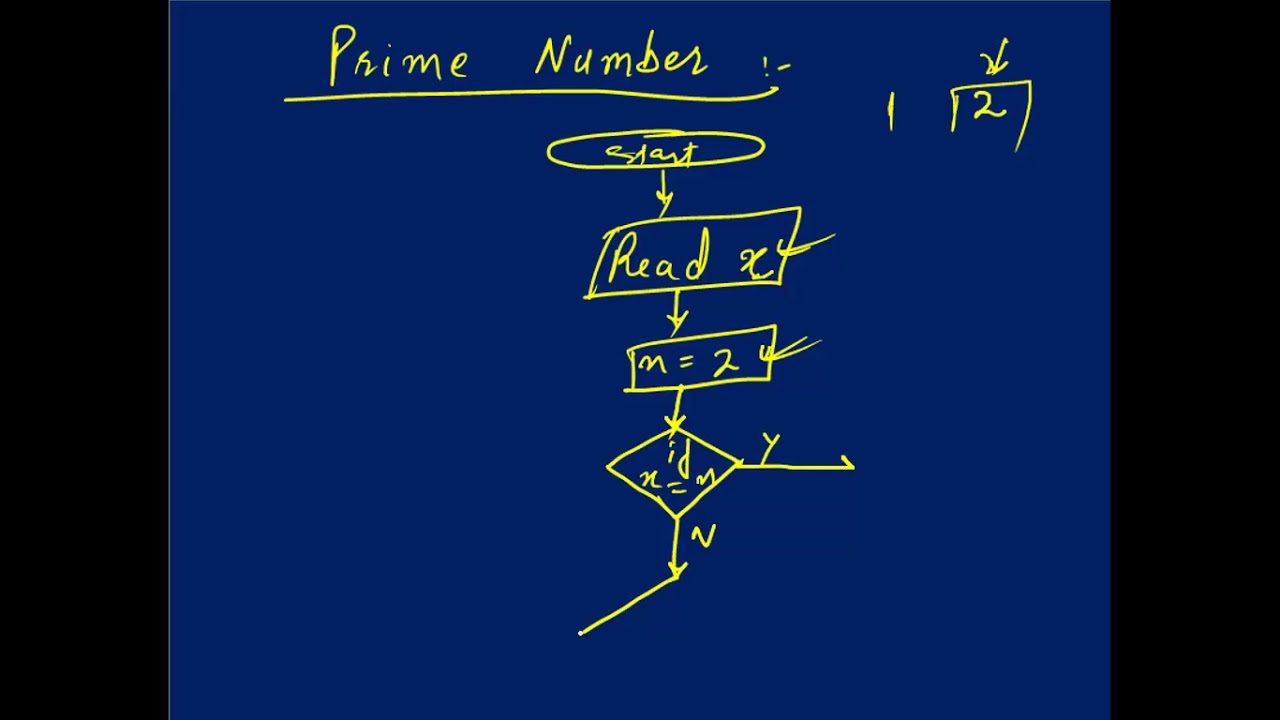 Prime Number :-
1 2
start
Read x
n = 2
if
x = n
Y
N